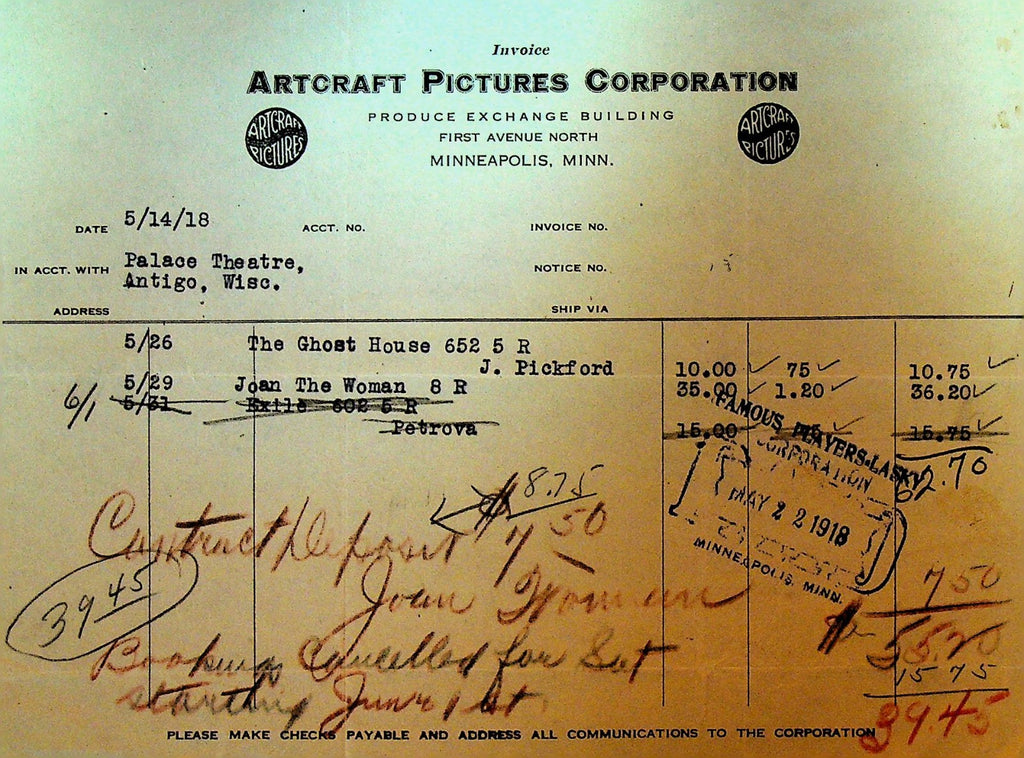 Invoice
ARTCRAFT PICTURES CORPORATION
ARTCRAFT PICTURES
PRODUCE EXCHANGE BUILDING
FIRST AVENUE NORTH
MINNEAPOLIS, MINN.
ARTCRAFT PICTURES
DATE 5/14/18 ACCT. NO. INVOICE NO.
IN ACCT. WITH Palace Theatre, NOTICE NO.
Antigo, Wisc.
ADDRESS SHIP VIA
5/26 The Ghost House 652 5 R
J. Pickford 10.00 75 10.75
5/29 Joan The Woman 8 R 35.00 1.20 36.20
6/1 5/31 Exile 602 5 R
Petrova 15.00 75 15.75
62.70
FAMOUS PLAYERS-LASKY
CORPORATION
MAY 22 1918
MINNEAPOLIS, MINN.
8.75
Contract Deposit $7.50
Joan Woman 7 50
39.45 55.20
Booking Cancelled for Sat 15 75
starting June 1st 39.45
PLEASE MAKE CHECKS PAYABLE AND ADDRESS ALL COMMUNICATIONS TO THE CORPORATION